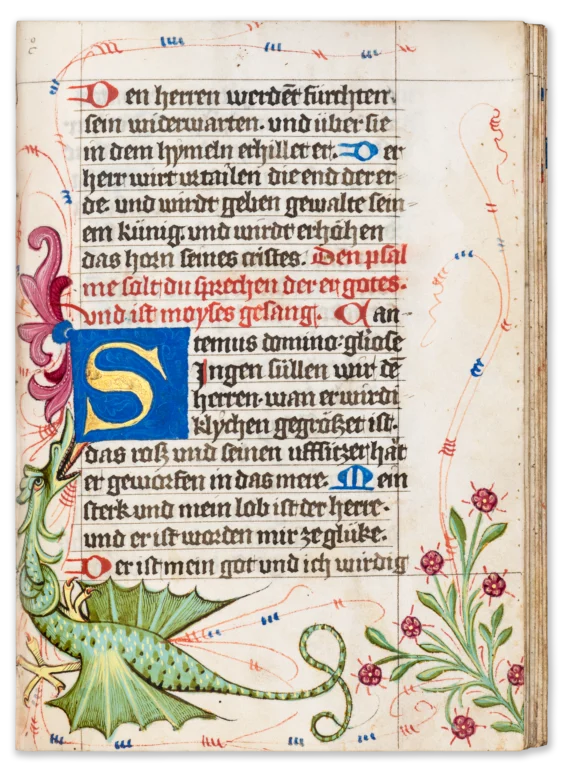 Den herren werdēt fürchten·
sein widerwarten· vnd über sie
in dem hymeln erhillet er· Der
herr wirt vrtailen die end der er-
de· vnd wirdt geben gewalte sein
em künig· vnd wirdt erhöhen
das horn seines cristes. Den psal
me solt du sprechen der en gotes·
vnd ist moyses gesang. Can-
temus domino· gliose
Singen süllen wir dē
herren· wan er wirdi
klychen gegrößet ist·
das roß vnd seinen uffsitzer hat
er geworfen in das mere· Mein
sterk vnd mein lob ist der herre·
vnd er ist worden mir ze glüke·
Der ist mein got vnd ich wirdig